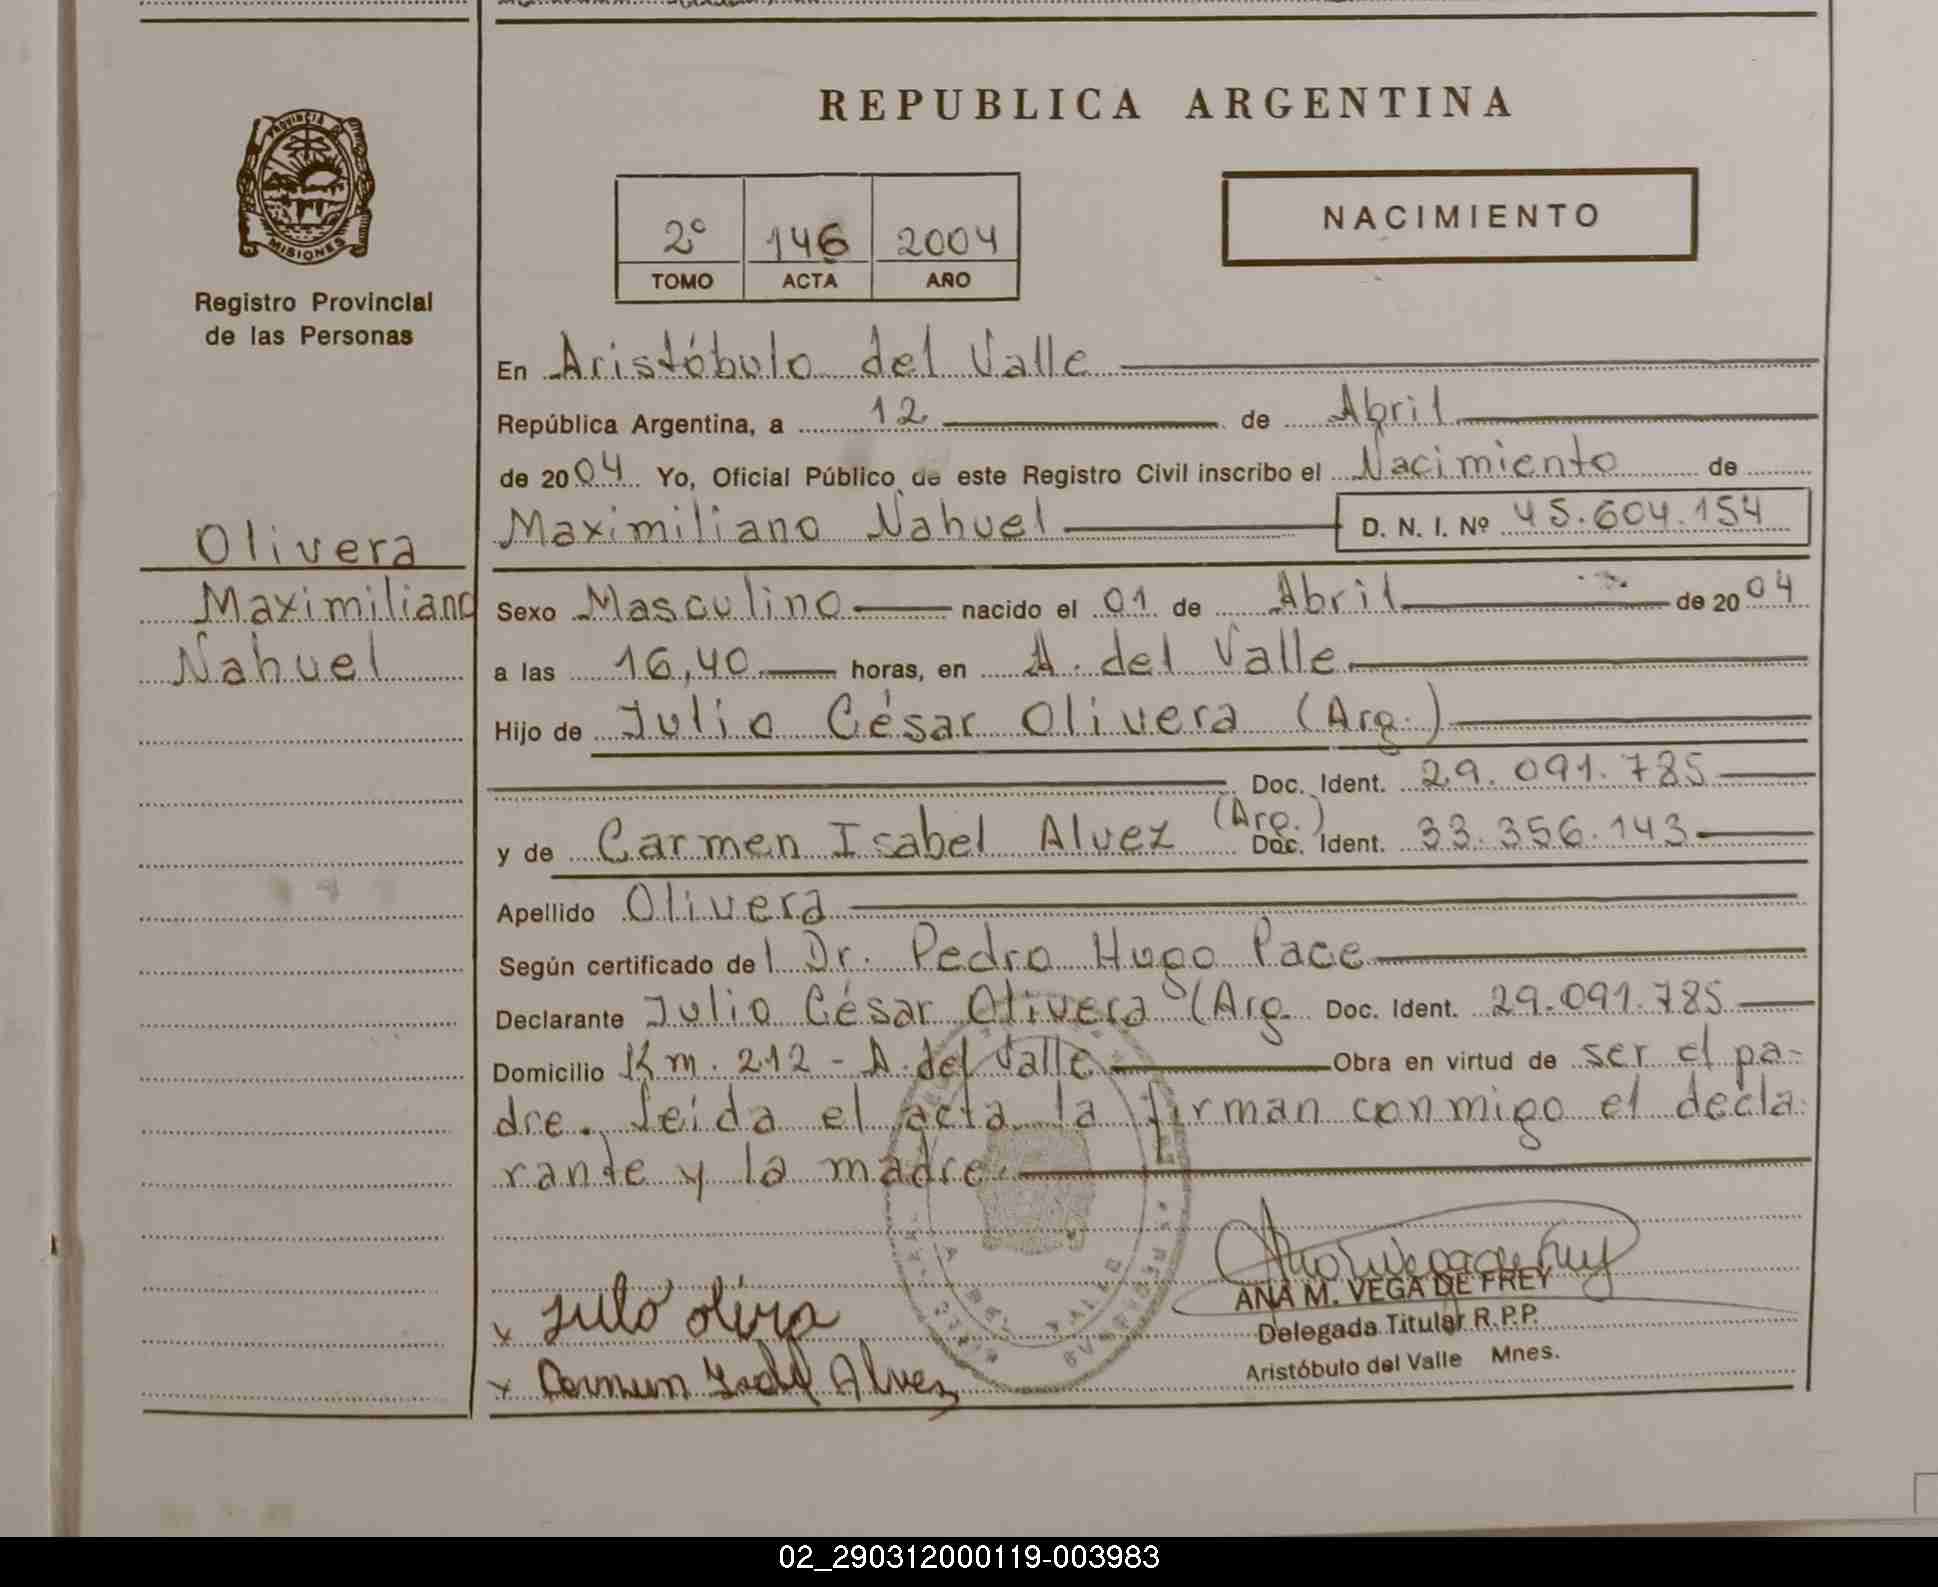 REPUBLICA ARGENTINA
PROVINCIA DE
MISIONES
Registro Provincial
de las Personas
2º 146 2004
TOMO ACTA AÑO
NACIMIENTO
En Aristóbulo del Valle
República Argentina, a 12 de Abril
de 2004 Yo, Oficial Público de este Registro Civil inscribo el Nacimiento de
Maximiliano Nahuel D. N. I. Nº 45.604.154
Olivera
Maximiliano
Nahuel
Sexo Masculino nacido el 01 de Abril de 2004
a las 16,40 horas, en A. del Valle
Hijo de Julio César Olivera (Arg.)
Doc. Ident. 29.091.785
y de Carmen Isabel Alvez (Arg.) Doc. Ident. 33.356.143
Apellido Olivera
Según certificado del Dr. Pedro Hugo Pace
Declarante Julio César Olivera (Arg. Doc. Ident. 29.091.785
Domicilio Km. 212 - A. del Valle Obra en virtud de ser el pa-
dre. Leida el acta la firman conmigo el decla-
rante y la madre.
x Julio Olivra
x Carmen Isabel Alvez
ANA M. VEGA DE FREY
Delegada Titular R.P.P.
Aristóbulo del Valle Mnes.
02_290312000119-003983